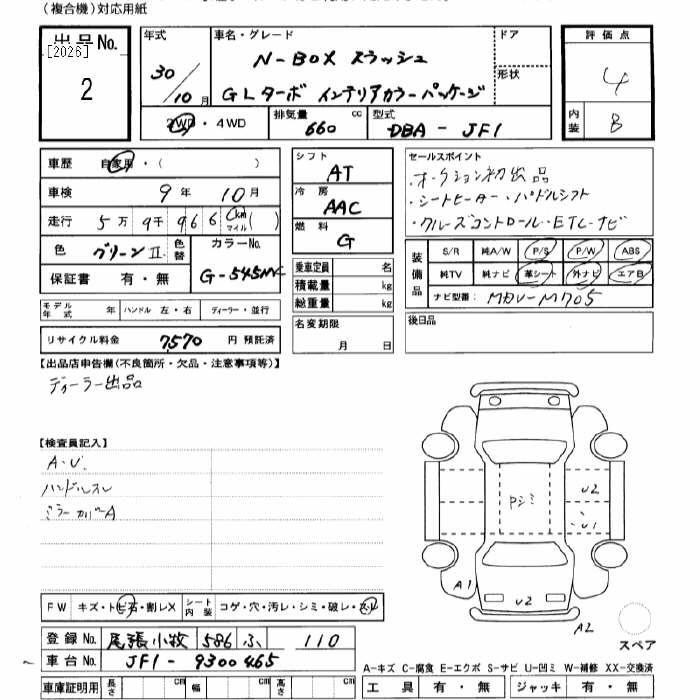 (複合機)対応用紙
出品No.
[2026]
2
年式
30/10月
車名・グレード
N-BOX スラッシュ
GLターボ インテリアカラーパッケージ
ドア
形状
評価点
4
内装
B
2WD・4WD
排気量
660 cc
型式
DBA-JF1
車歴 自家用・( )
車検 9年 10月
走行 5万 9千 966 km マイル ( )
色 グリーンⅡ 色替
カラーNo.
G-545M
保証書 有・無
モデル年式 年 ハンドル 左・右 ディーラー・並行
リサイクル料金 7,570 円 預託済
シフト
AT
冷房
AAC
燃料
G
乗車定員 名
積載量 kg
総重量 kg
名変期限
月 日
セールスポイント
・オークション初出品
・シートヒーター・パドルシフト
・クルーズコントロール・ETC・ナビ
装備品
S/R 純A/W P/S P/W ABS
純TV 純ナビ 革シート 外ナビ エアB
ナビ型番: MDV-M705
後日品
【出品店申告欄(不良箇所・欠品・注意事項等)】
ディーラー出品
【検査員記入】
A・U
ハンドルスレ
ミラーカバーA
Pシミ
U2
U1
A1
U2
A2
スペア
FW キズ・トビ石・割レX シート内装 コゲ・穴・汚レ・シミ・破レ・スレ
登録No. 尾張小牧 586 ふ 110
車台No. JF1-9300465
車庫証明用 長さ cm 幅 cm 高さ cm
A-キズ C-腐食 E-エクボ S-サビ U-凹ミ W-補修 XX-交換済
工具 有・無 ジャッキ 有・無